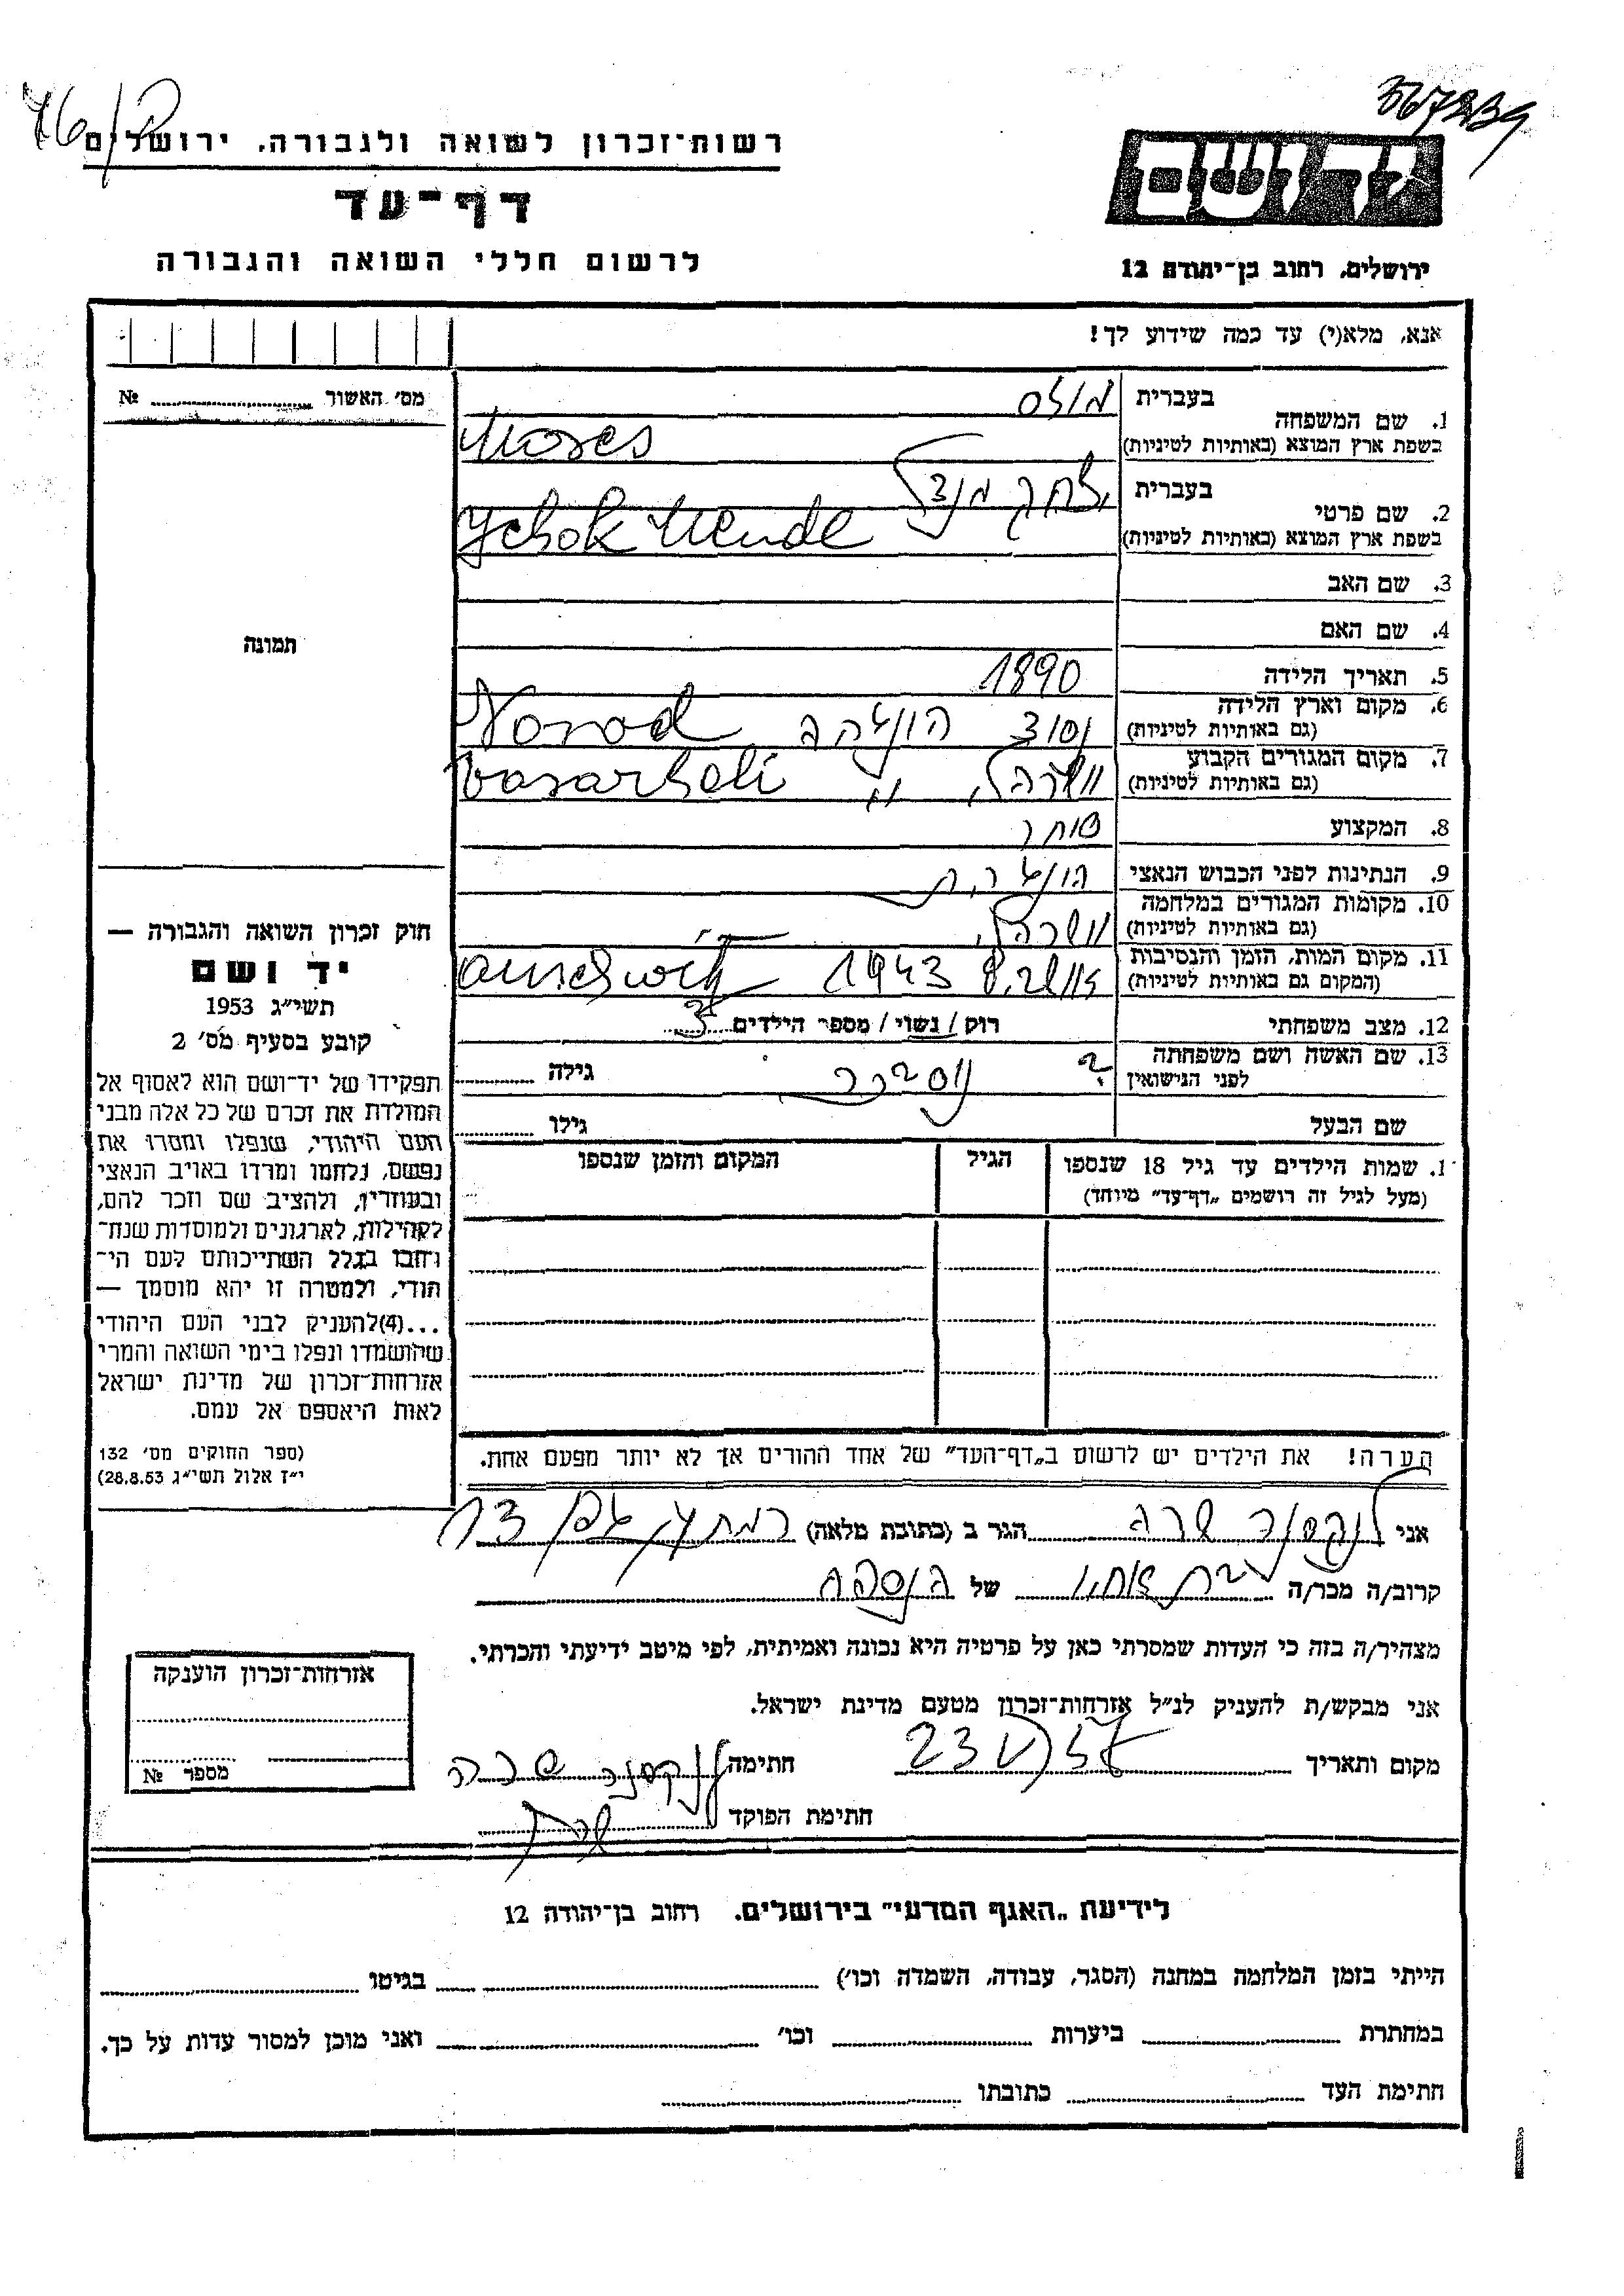 76/
רשות־זכרון לשואה ולגבורה, ירושלים
יד ושם
דף־עד
לרשום חללי השואה והגבורה
ירושלים, רחוב בן־יהודה 12
אנא, מלא(י) עד כמה שידוע לך!
מס׳ האשור № 
1. שם המשפחה
בעברית מוזס
בשפת ארץ המוצא (באותיות לטיניות) Moses
2. שם פרטי
בעברית יצחק מנדל
בשפת ארץ המוצא (באותיות לטיניות) Jchok Mendl
3. שם האב
4. שם האם
5. תאריך הלידה 1890
6. מקום וארץ הלידה
(גם באותיות לטיניות) הונגריה Nosod
7. מקום המגורים הקבוע
(גם באותיות לטיניות) וושרהלי " Vasarheli
8. המקצוע סוחר
9. הנתינות לפני הכבוש הנאצי הונגרית
10. מקומות המגורים במלחמה
(גם באותיות לטיניות) וושרהלי
11. מקום המות, הזמן והנסיבות
(המקום גם באותיות לטיניות) 1943 Auschwitz
12. מצב משפחתי רווק/נשוי/מספר הילדים 3
13. שם האשה ושם משפחתה
לפני הנישואין ? גילה
שם הבעל גילו
תמונה
חוק זכרון השואה והגבורה —
יד ושם
תשי״ג 1953
קובע בסעיף מס׳ 2
תפקידו של יד־ושם הוא לאסוף אל
המולדת את זכרם של כל אלה מבני
העם היהודי, שנפלו ומסרו את
נפשם, נלחמו ומרדו באויב הנאצי
ובעוזריו, ולהציב שם וזכר להם,
לקהילות, לארגונים ולמוסדות שנח־
רחבו בגלל השתייכותם לעם הי־
הודי, ולמטרה זו יהא מוסמך —
...(4)להעניק לבני העם היהודי
שהושמדו ונפלו בימי השואה והמרי
אזרחות־זכרון של מדינת ישראל
לאות היאספם אל עמם.
(ספר החוקים מס׳ 132
י״ז אלול תשי״ג 28.8.53)
1. שמות הילדים עד גיל 18 שנספו
(מעל לגיל זה רושמים „דף־עד״ מיוחד)
הגיל
המקום והזמן שנספו
הערה! את הילדים יש לרשום ב„דף־העד״ של אחד ההורים אך לא יותר מפעם אחת.
אני שרה הגר ב (כתובת מלאה) רמת גן 13
קרוב/ה מכר/ה בת אחיו של הנספה
מצהיר/ה בזה כי העדות שמסרתי כאן על פרטיה היא נכונה ואמיתית, לפי מיטב ידיעתי והכרתי.
אני מבקש/ת להעניק לנ״ל אזרחות־זכרון מטעם מדינת ישראל.
מקום ותאריך 23 חתימה שרה
חתימת הפוקד
אזרחות־זכרון הוענקה
מספר №
לידיעת „האגף המדעי״ בירושלים, רחוב בן־יהודה 12
הייתי בזמן המלחמה במחנה (הסגר, עבודה, השמדה וכו׳) בגיטו
במחתרת ביערות וכו׳ ואני מוכן למסור עדות על כך.
חתימת העד כתובתו